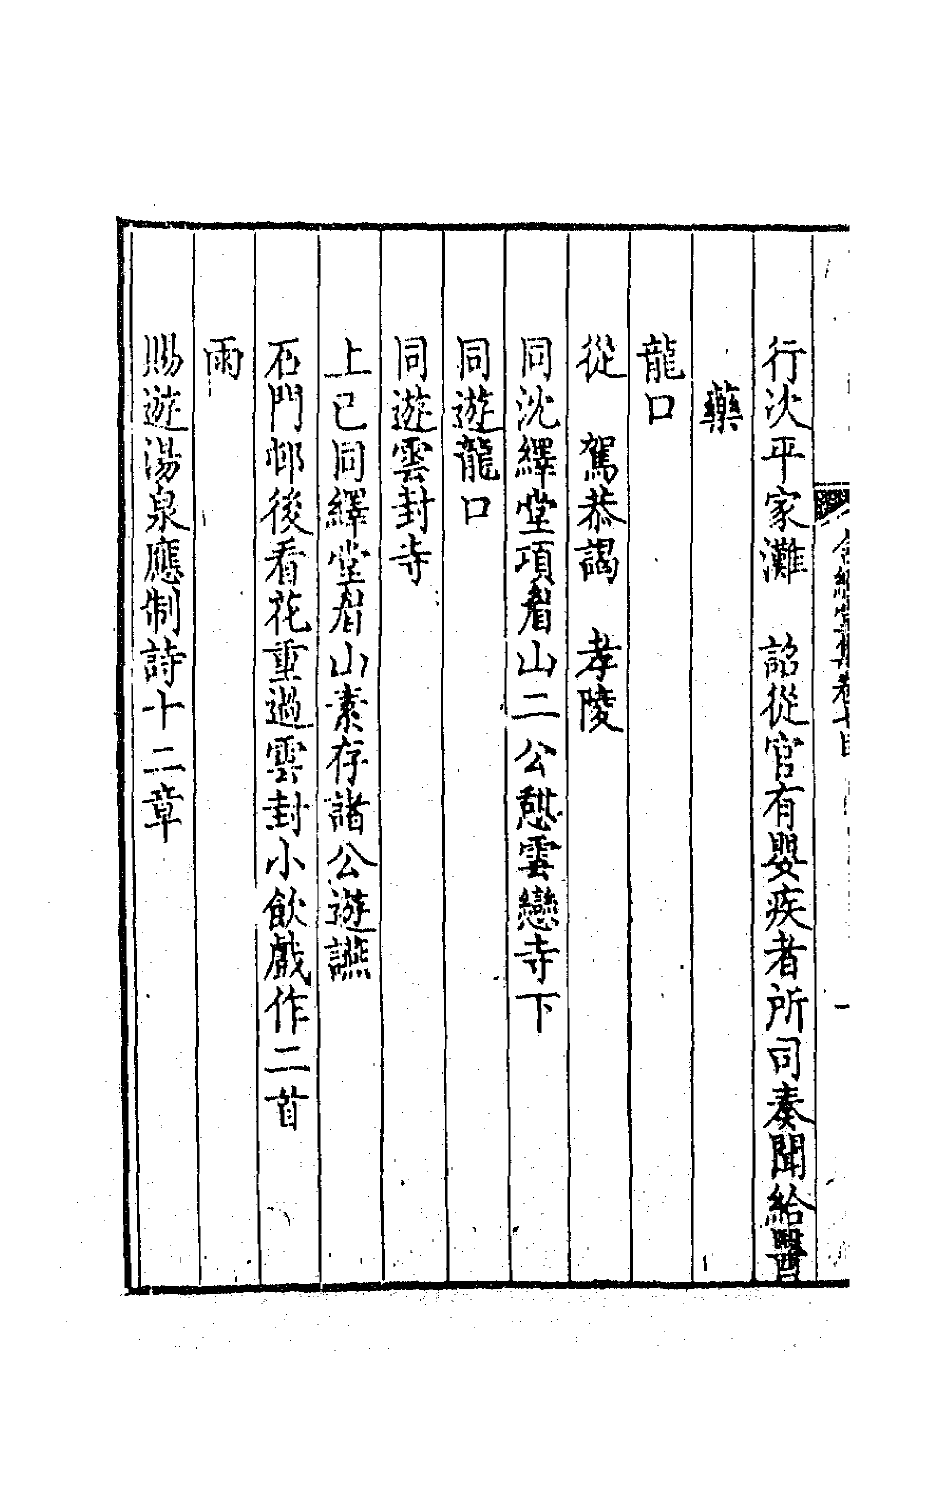 行次平家灘　詔從官有嬰疾者所司奏聞給醫
藥
龍口
從　駕恭謁　孝陵
同沈繹堂項眉山二公憇雲戀寺下
同遊龍口
同遊雲封寺
上巳同繹堂眉山素存諸公遊讌
石門邨後看花重過雲封小飲戲作二首
雨
賜遊湯泉應制詩十二章